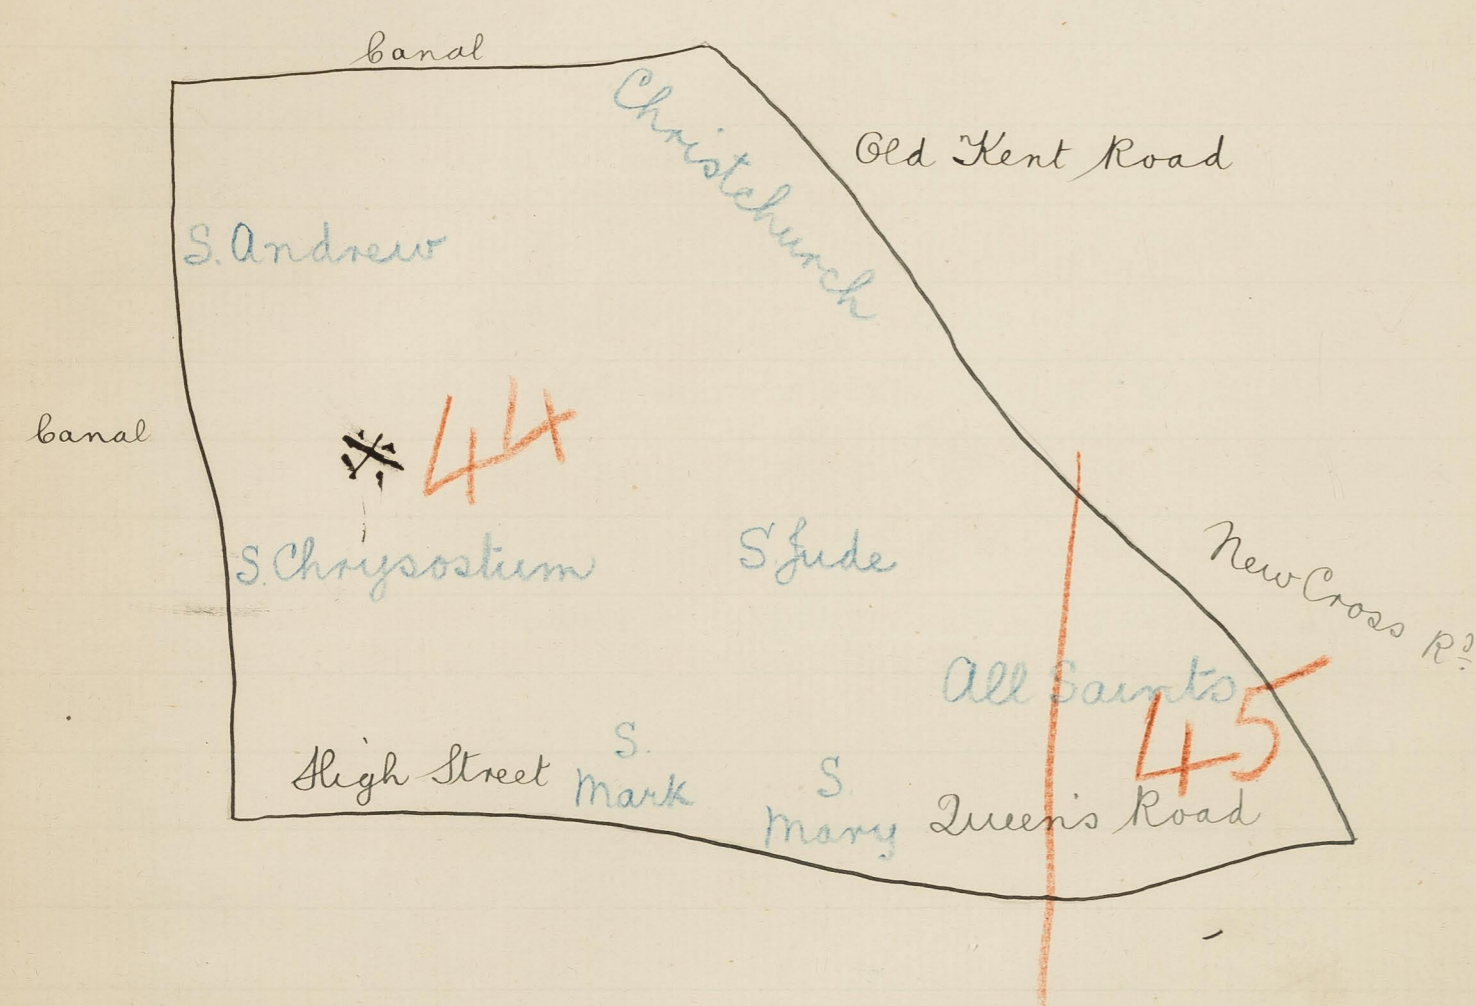 Canal
Christchurch
Old Kent Road
S. Andrew
Canal
44
S. Chrysostum
S Jude
New Cross Rd
All Saints
45
High Street
S.
Mark
S
Mary
Queen's Road